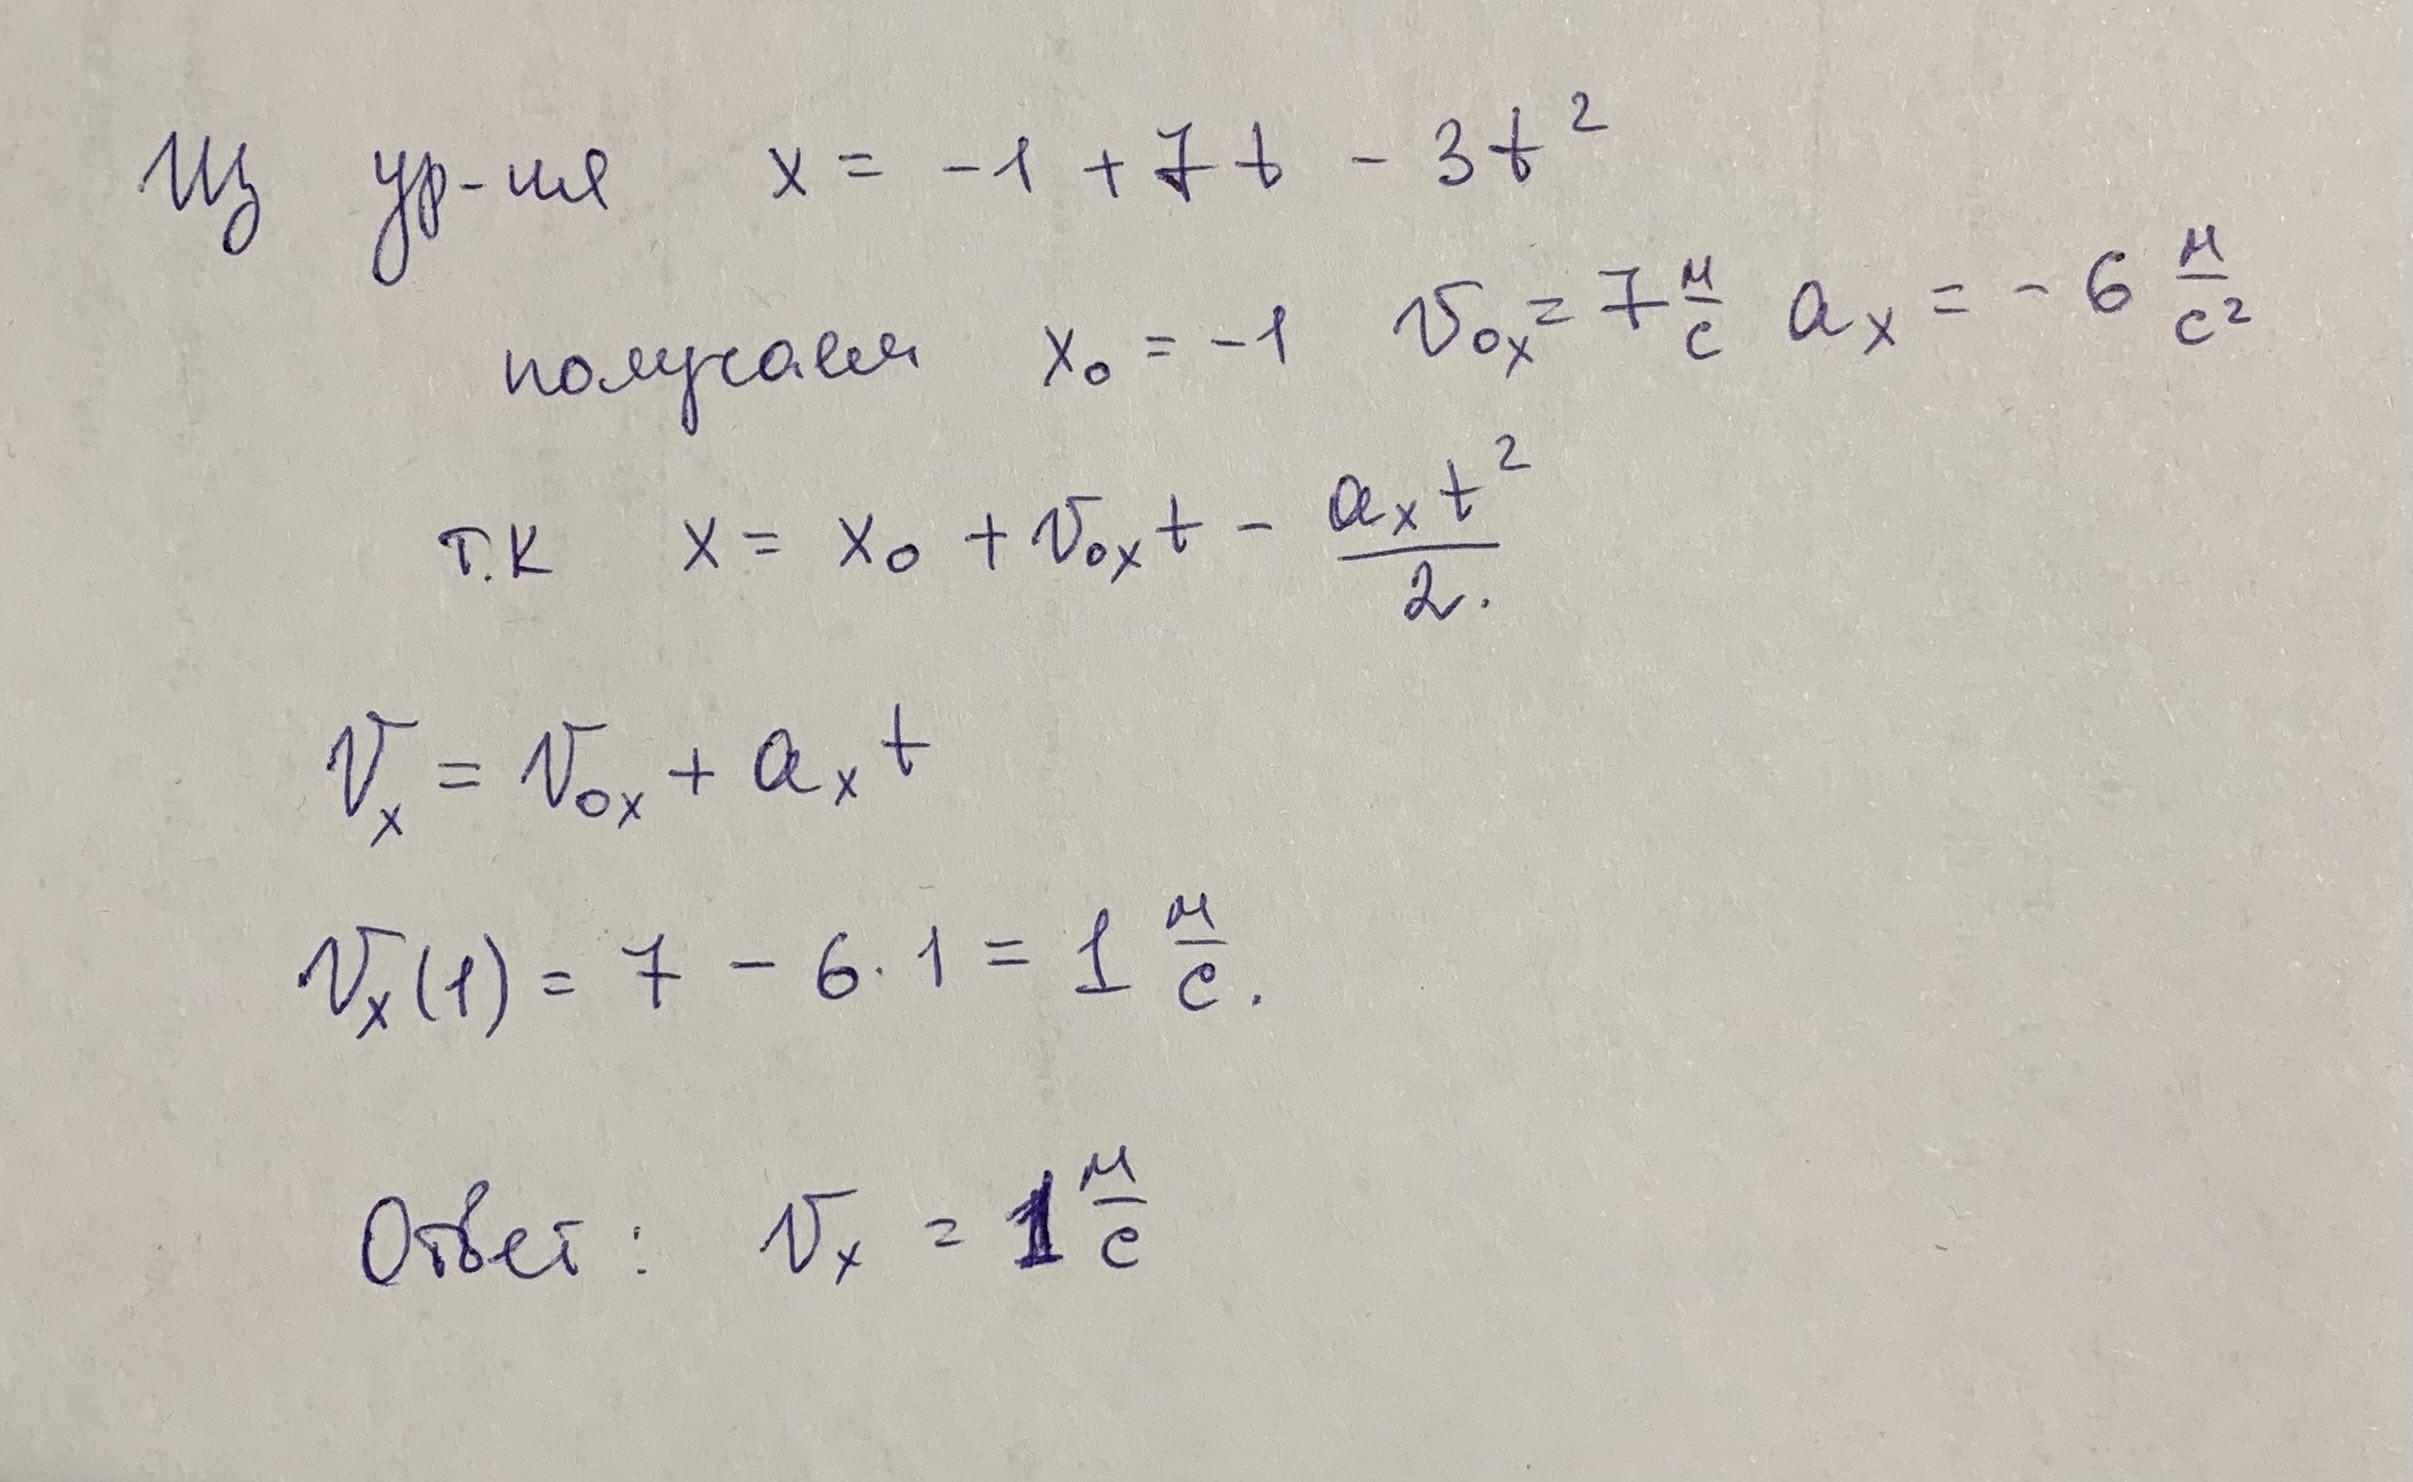 Из ур-ия x = -1 + 7t - 3t²
получаем x₀ = -1 v₀ₓ = 7 м/с aₓ = - 6 м/с²
т.к x = x₀ + v₀ₓt - aₓt²/2.
vₓ = v₀ₓ + aₓt
vₓ(1) = 7 - 6 · 1 = 1 м/с.
Ответ: vₓ = 1 м/с